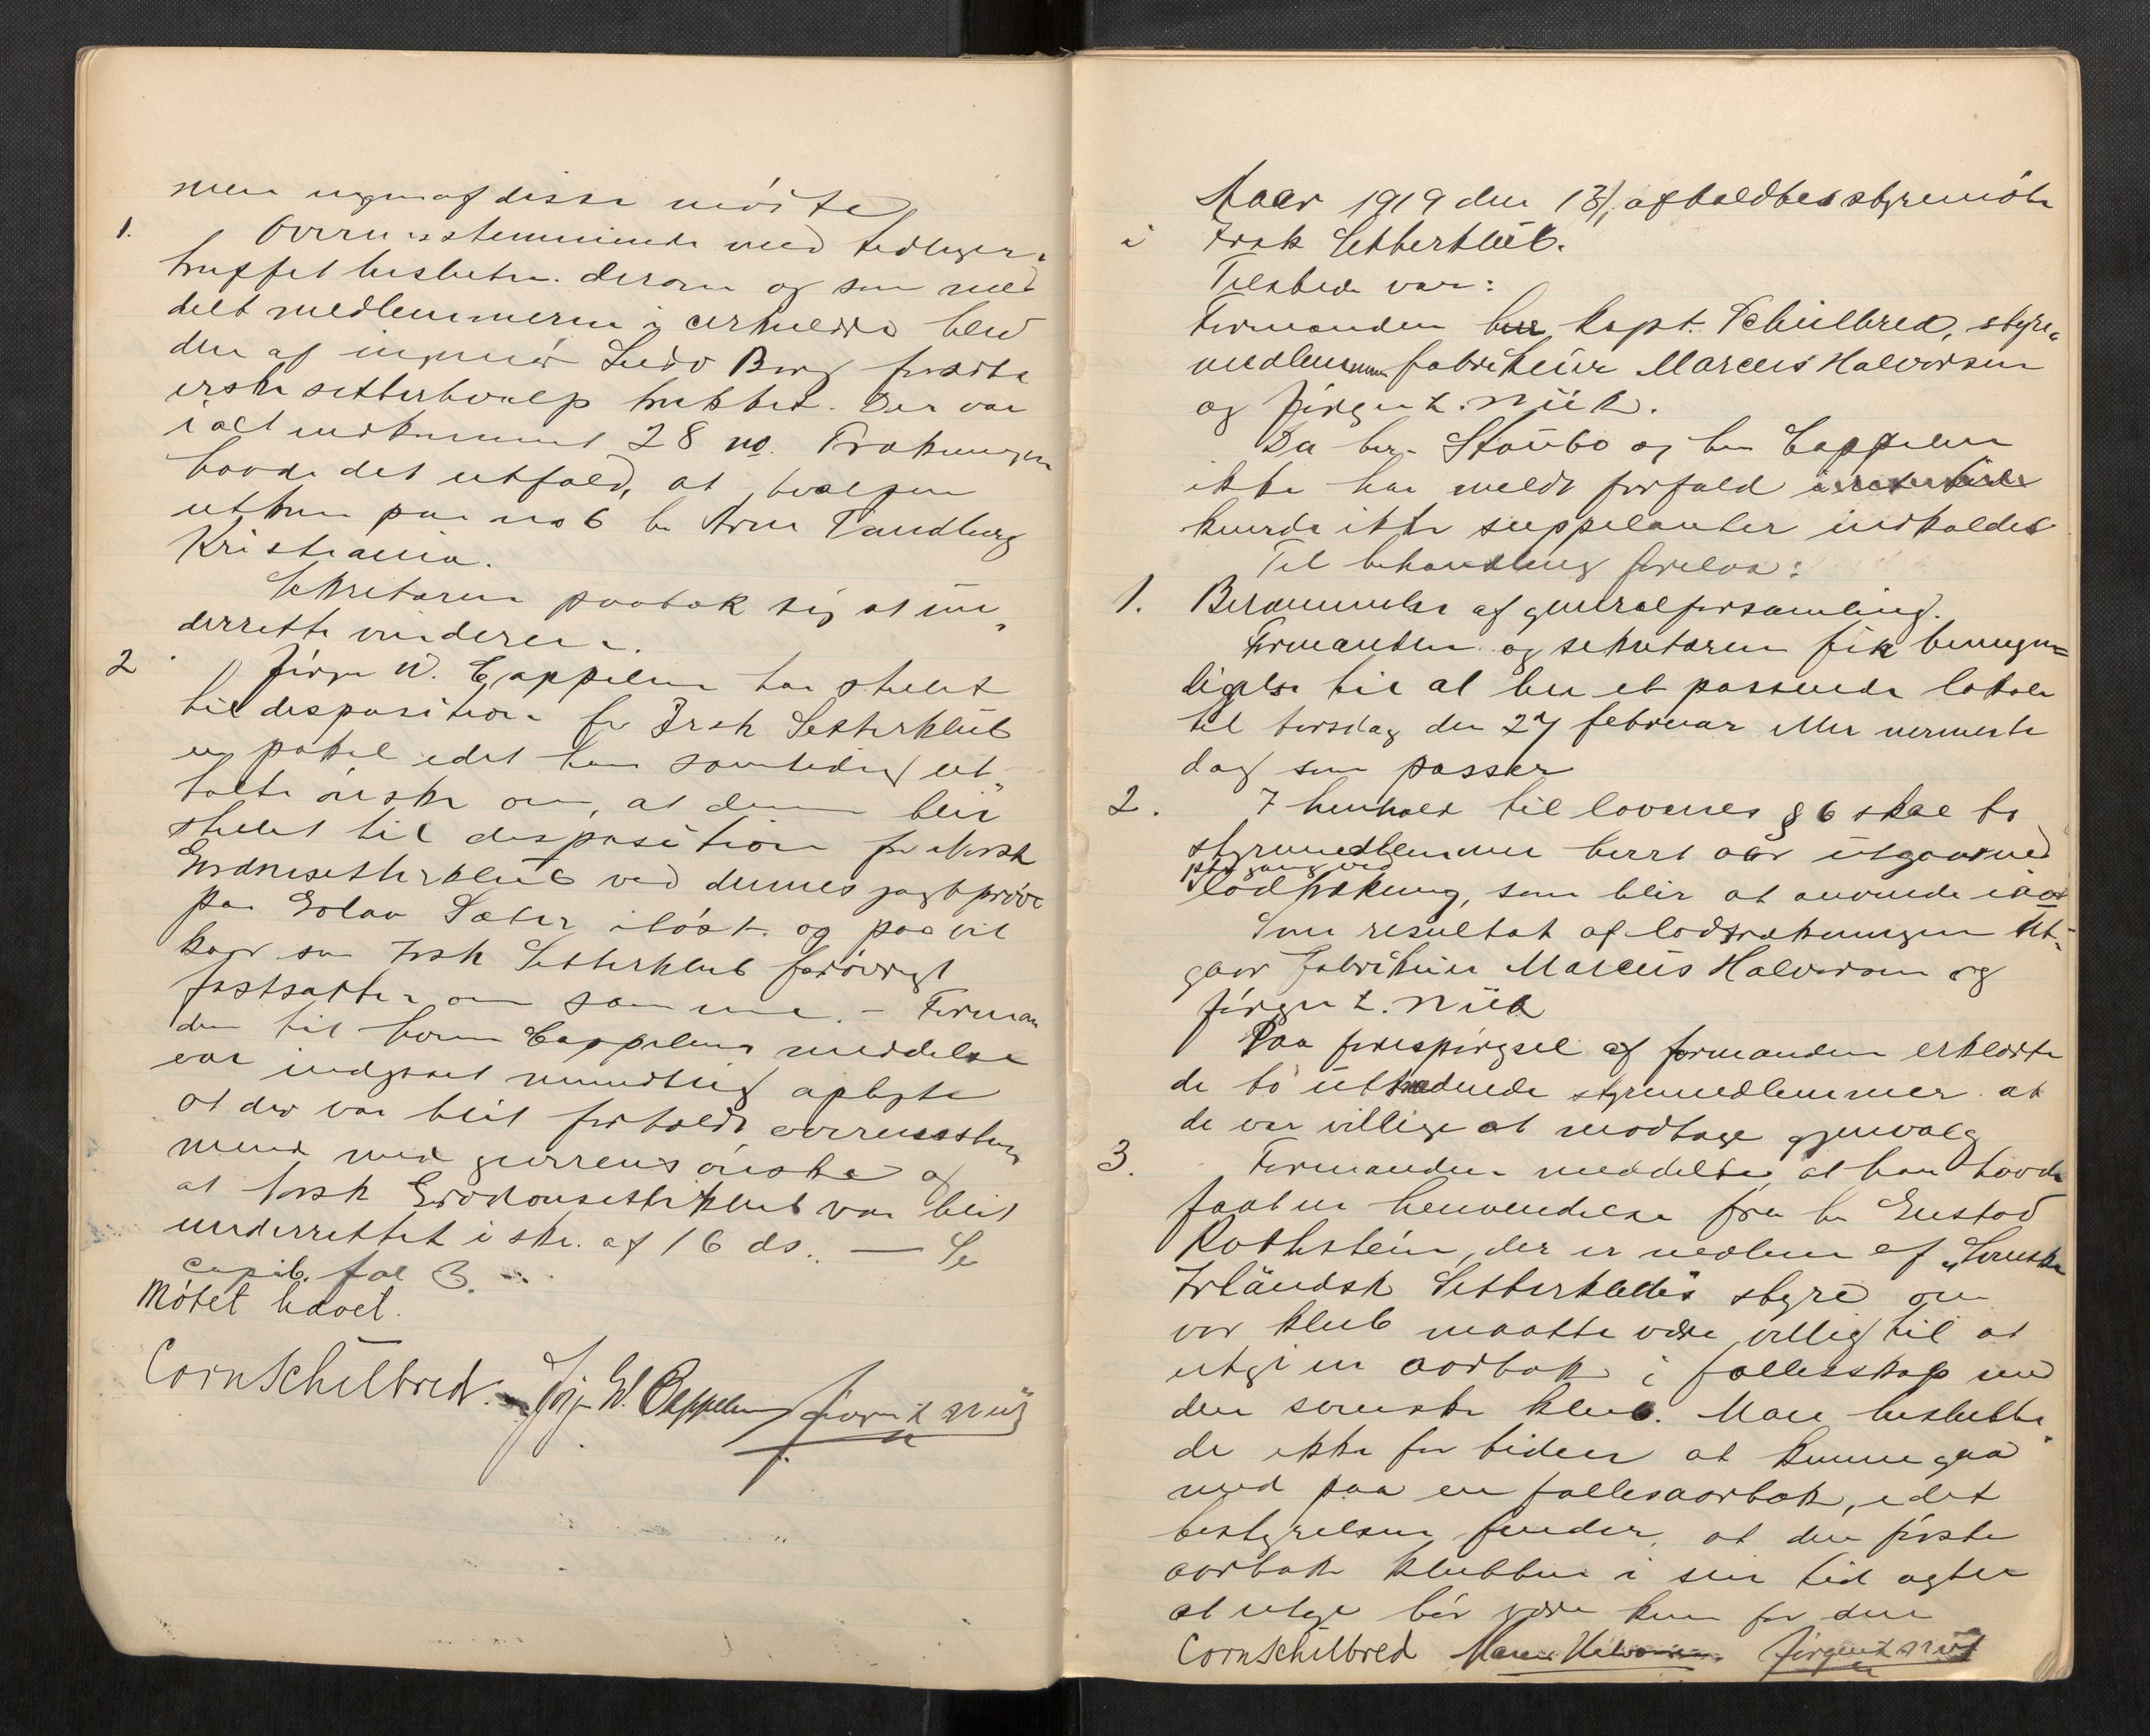 men ingen af disse møtte
1. Overensstemmende med tidligere
truffet beslutn. derom og som med
delt medlemmerne i cirkulære blev
den af ingeniør Ludv Berg forærte
irske setterhvalp trukket. Der var
i alt indkommet 28 no. Trækningen
havde det utfald, at hvalpen
uttrn paa no 6 hr Arne Tandberg
Kristiania.
Sekretæren paatok sig at un-
derrette vinderen.
2 Jørgen W. Cappelen har stillet
til disposition for Irsk Setterklub
en pokal idet han samtidig ut-
talte ønske om, at denne blir
stillet til disposition for Norsk
Gordonsetterklub ved dennes jagtprøve
paa Golaa Sæter i løst. og paa vil
kaar som Irsk Setterklub forøvrigt
fastsætter om samme. - Forman
den til herr Cappelens meddelse
var indgaaet mundtlig oplyste
at der var blit forholdt overensstem
mend med giverens ønske og
at Norsk Gordonsetterklub var blit
underrettet i skr. af 16 ds. — Se
copib. fol 3.
Møtet hævet.
Corn Schilbred. Jørg. W. Cappelen Jørgen Z Müz
Aaar 1919 den 13/1 afholdtes styremøte
i Irsk Setterklub.
Tilstede var:
Formanden herr kapt. Schilbred, styre-
medlemmer fabrikeier Marcus Halvorsen
og Jørgen Z. Müz.
Da hr. Staubo og hr Cappelen
ikke har meldt forfald
kunde ikke suppleanter indkaldes
Til behandling forelaa:
1. Berammelse af generalforsamling.
Formanden og sekretæren fik bemyn-
digelse til at leie et passende lokale
til torsdag den 27 februar eller nærmeste
dag som passer
2. I henhold til lovenes § 6 skal to
styremedlemmer hvert aar utgaa ved
1ste gang ved
lodtrækning, som blir at anvende iaar
Som resultat af lodtrækningen ut-
gaar fabrikeier Marcus Halvorsen og
Jørgen Z. Müz
Paa forespørgsel af formanden erklærte
de to uttrædende styremedlemmer at
de var villige at modtage gjenvalg
3. Formanden meddelte at han havde
faat en henvendelse fra hr Gustav
Rothstein, der er medlem af „Svenska
Irländsk Setterklubs styre om
vor klub maatte være villig til at
utgi en aarbok i fællesskap med
den svenske klub. Man beslutte-
de ikke for tiden at kunne gaa
med paa en fællesaarbok, idet
bestyrelsen finder, at den første
aarbok klubben i sin tid agter
at utgi bør være kun for den
Corn Schilbred Marcus Halvorsen. Jørgen Z Müz